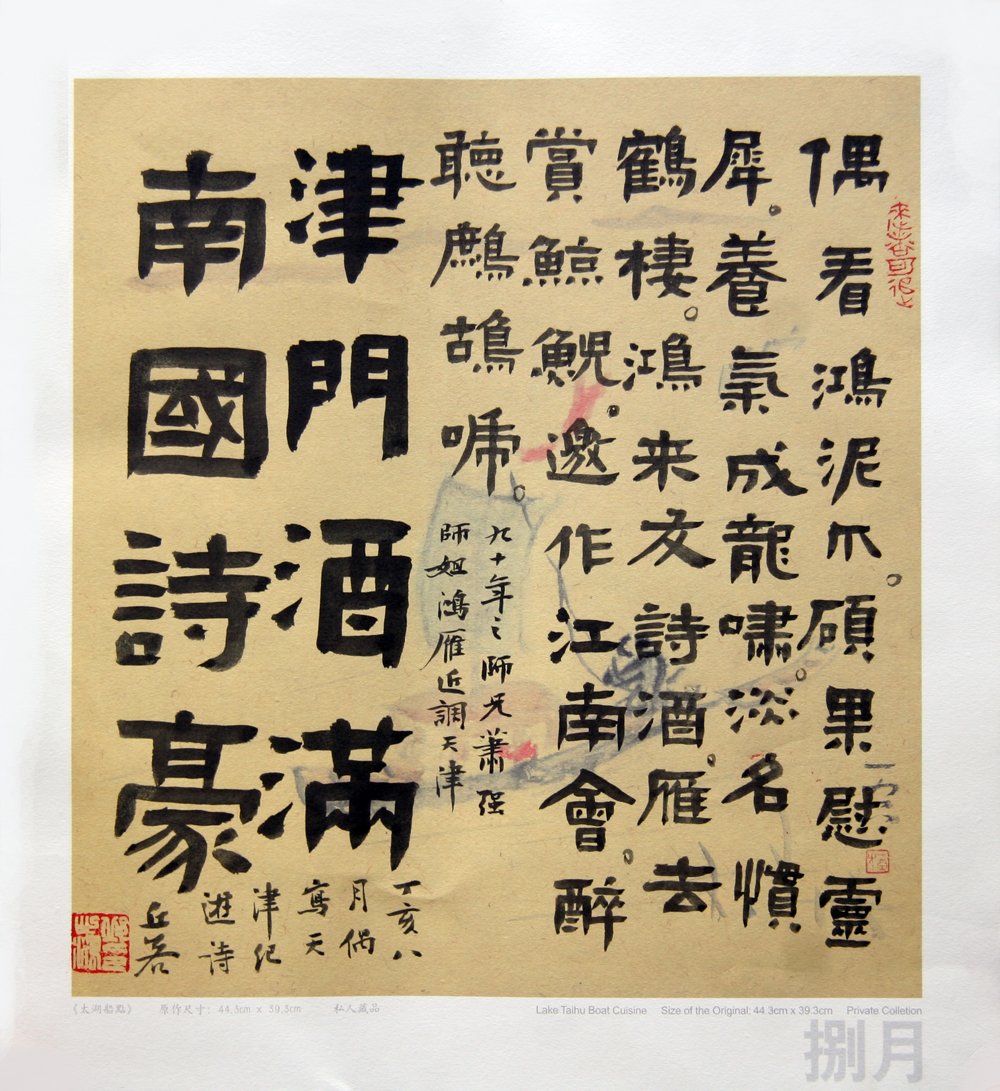 偶看鴻泥爪。碩果慰靈
犀。養氣成龍嘯。淡名慣
鶴棲。鴻来友詩酒。雁去
賞鯨鯢。邀作江南會。醉
聽鷓鴣啼。
九十年之師兄蕭强
師姐鴻雁近調天津
津門酒滿
南國詩豪
丁亥八
月偶
寫天
津紀
遊詩
《太湖船點》 原作尺寸: 44.3cm x 39.3cm 私人藏品
Lake Taihu Boat Cuisine Size of the Original: 44.3cm x 39.3cm Private Colletion
捌月